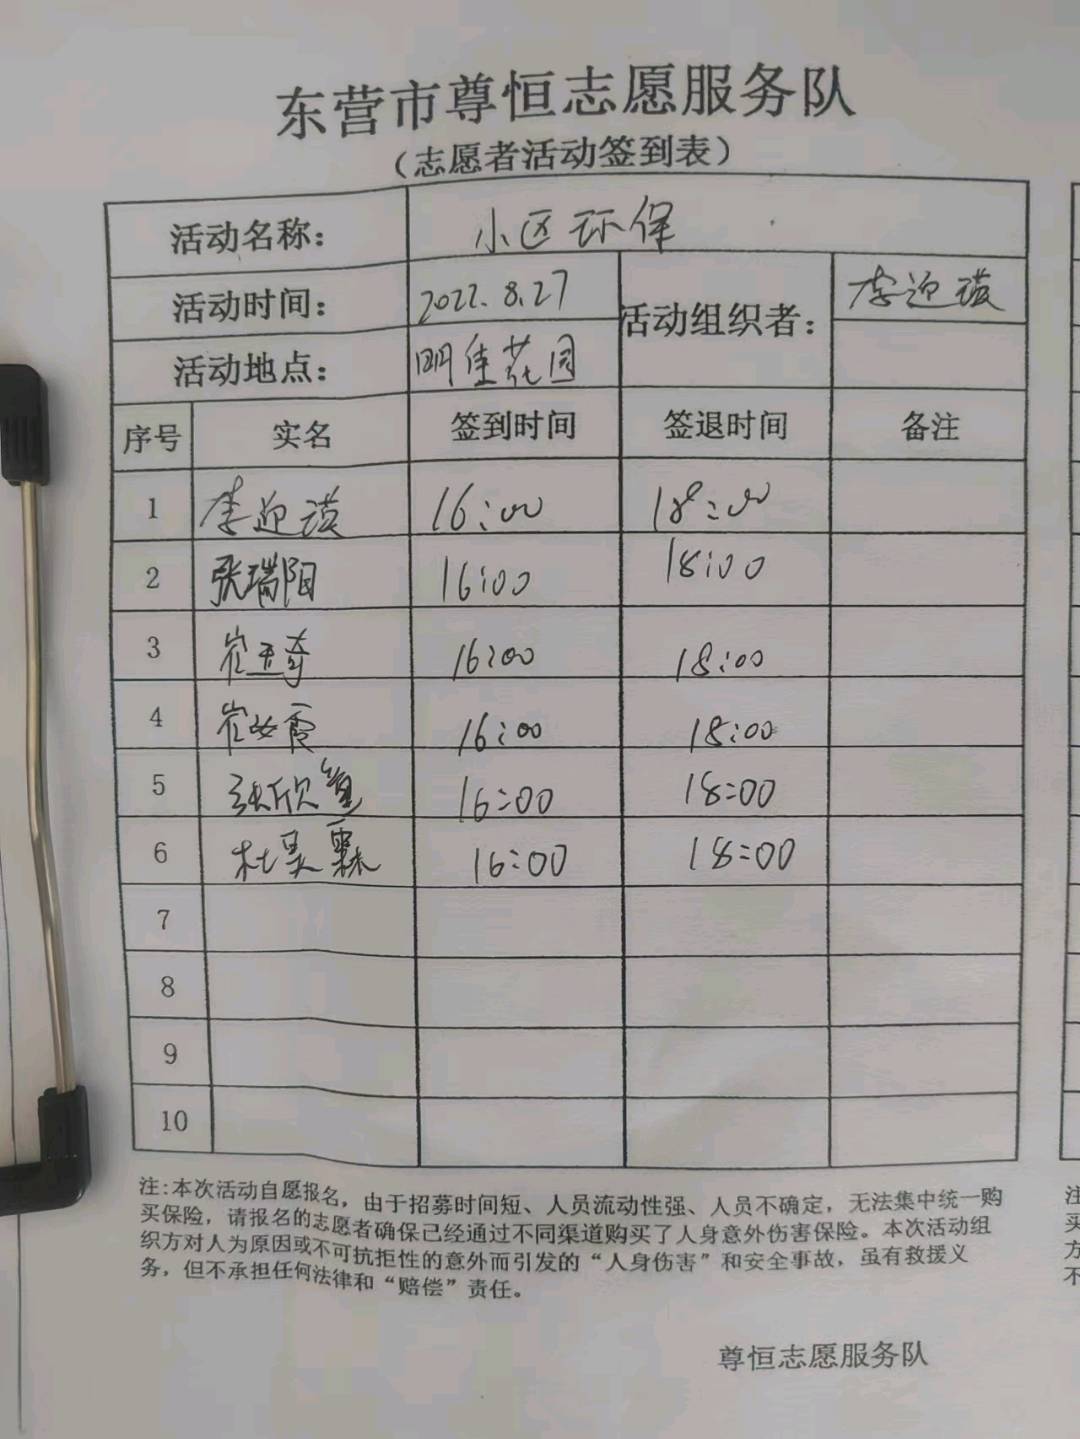 东营市尊恒志愿服务队
（志愿者活动签到表）
活动名称： 小区环保
活动时间： 2022.8.27 活动组织者： 李迎璞
活动地点： 明佳花园
序号 实名 签到时间 签退时间 备注
1 李迎璞 16:00 18:00
2 张瑞阳 16:00 18:00
3 崔玉奇 16:00 18:00
4 崔女霞 16:00 18:00
5 张欣 16:00 18:00
6 杜昊霖 16:00 18:00
7
8
9
10
注:本次活动自愿报名，由于招募时间短、人员流动性强、人员不确定，无法集中统一购
买保险，请报名的志愿者确保已经通过不同渠道购买了人身意外伤害保险。本次活动组
织方对人为原因或不可抗拒性的意外而引发的“人身伤害”和安全事故，虽有救援义
务，但不承担任何法律和“赔偿”责任。
尊恒志愿服务队